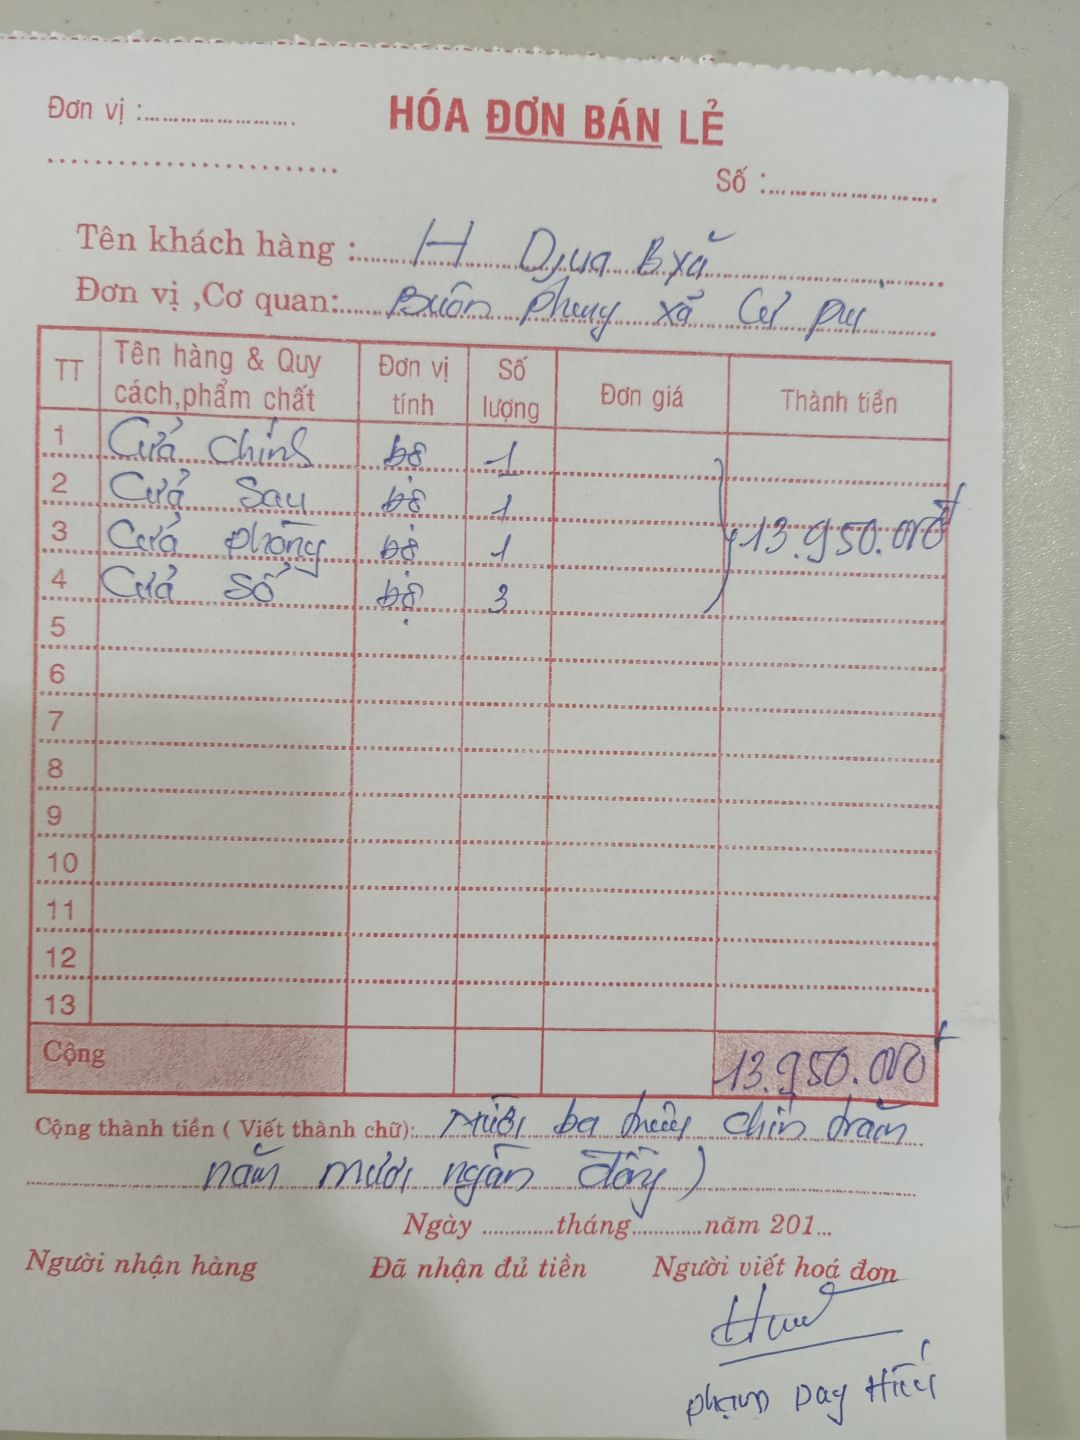 Đơn vị :.....................
HÓA ĐƠN BÁN LẺ
.........................
Số :.....................
Tên khách hàng : H Djua Byă
Đơn vị ,Cơ quan: Buôn phung xã Cư Pui
TT Tên hàng & Quy cách,phẩm chất Đơn vị tính Số lượng Đơn giá Thành tiền
1 Cửa chính bộ 1
2 Cửa sau bộ 1
13.950.000đ
3 Cửa phòng bộ 1
4 Cửa sổ bộ 3
5
6
7
8
9
10
11
12
13
Cộng 13.950.000đ
Cộng thành tiền ( Viết thành chữ): Mười ba triệu chín trăm
năm mươi ngàn đồng )
Ngày ...........tháng...........năm 201...
Người nhận hàng Đã nhận đủ tiền Người viết hoá đơn
phạm Duy Hiếu